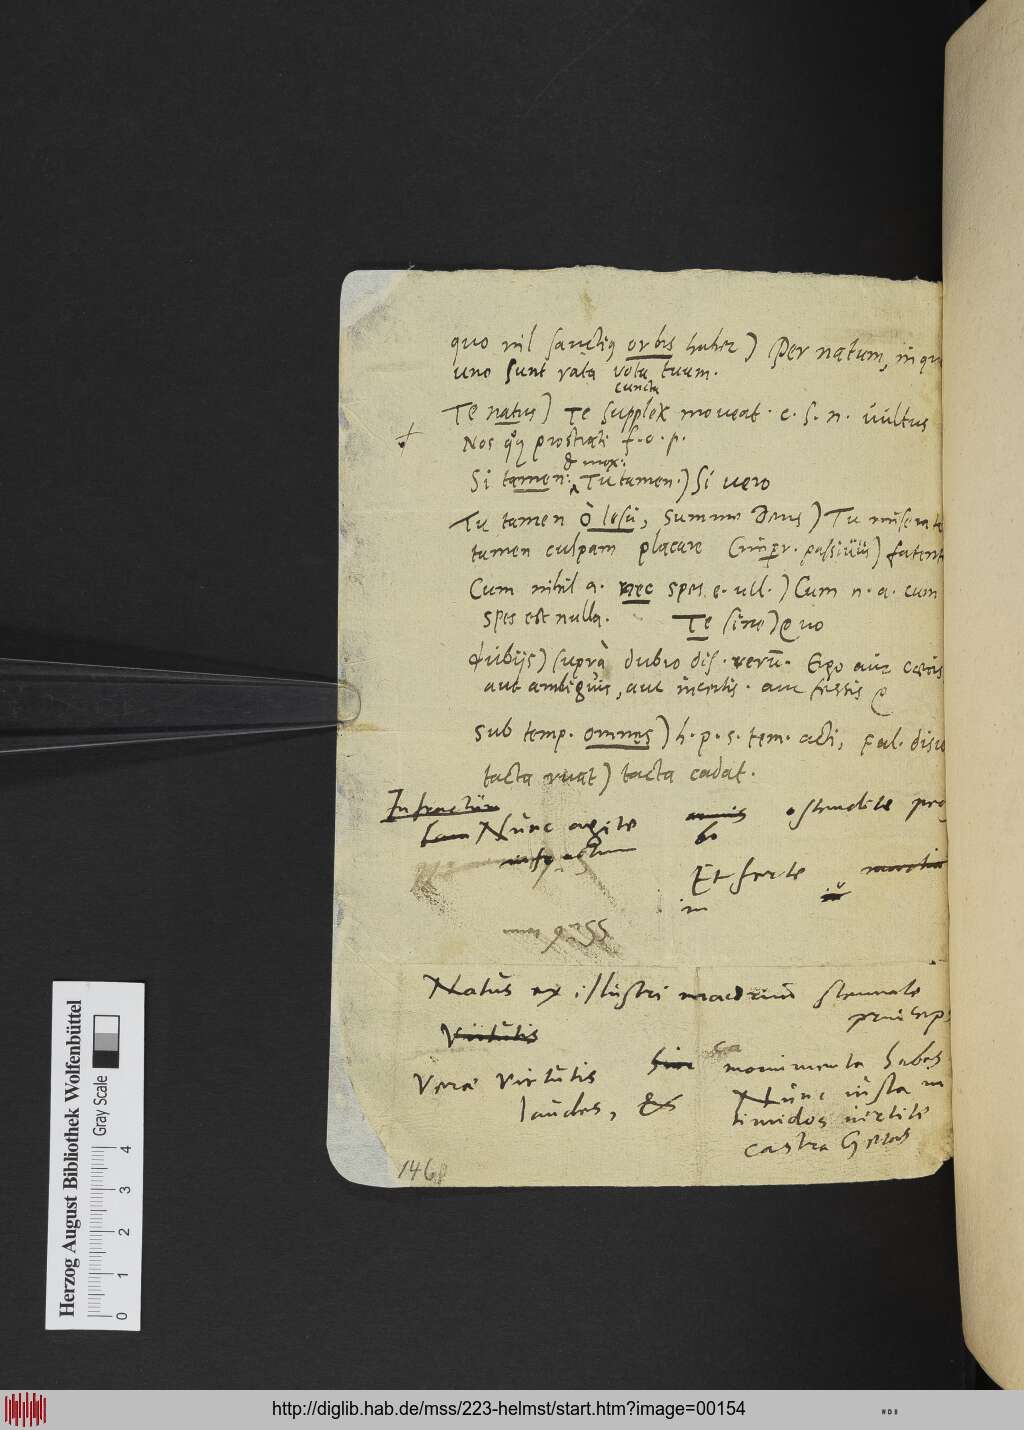 quo nil sanctiq orbis habet) Per natum, in qu
uno sunt rata vota tuum.
cuncta
Te natus) Te supplex moveat. c. s. n. vultus
Nos qq prostrati f. o. p.
& mox:
Si tamen: Tu tamen.) Si vero
Tu tamen ò Iesu, summe Deus) Tu misera
tamen culpam placare fatent
Cum nihil a. nec spes e. ull.) Cum n. a. cum
spes est nulla. Te sine) quo
dubijs) suprà dubio dis. rerū. Ergo aut cæcis
aut ambiguis, aut incertis. aut fessis
sub temp. omnes) h. p. s. tem. acti, fal. disc
tacta ruat) tacta cadat.
Infractum
Nunc agite ostendite pro
infractum bo
Et ferte
in
Natus ex illustri maiorum stemmate
princeps
Virtutis
Veræ virtutis monimenta habes
laudes, & Nunc iusta in
timidos vertite
castra Getas
146
Herzog August Bibliothek Wolfenbüttel
Gray Scale
0 1 2 3 4
http://diglib.hab.de/mss/223-helmst/start.htm?image=00154